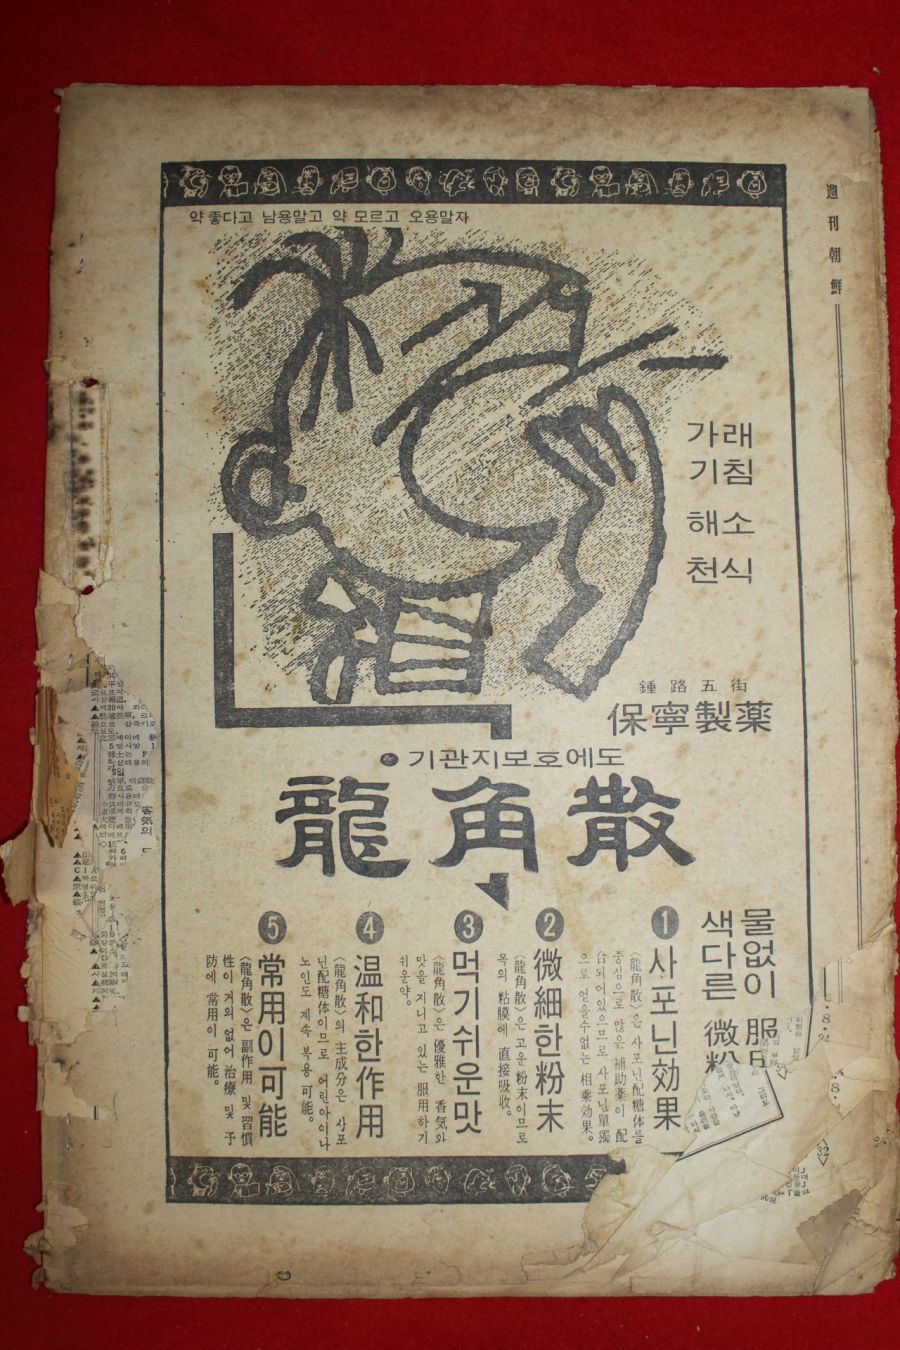 週刊朝鮮
약 좋다고 남용말고 약 모르고 오용말자
가래
기침
해소
천식
鍾路五街
保寧製薬
기관지보호에도
龍角散
물없이 服用
색다른 微粉
❶ 사포닌効果
〈龍角散〉은 사포닌配糖体를
중심으로 많은 補助薬이 配
合되어있으므로 사포닌單獨
으로 얻을수없는 相乘効果。
❷ 微細한粉末
〈龍角散〉은 고운粉末이므로
목의 粘膜에 直接吸收。
❸ 먹기쉬운맛
〈龍角散〉은 優雅한 香気와
맛을 지니고 있는 服用하기
쉬운약。
❹ 温和한作用
〈龍角散〉의 主成分은 사포
닌配糖体이므로 어린아이나
노인도 계속 복용可能。
❺ 常用이可能
〈龍角散〉은 副作用 및 習慣
性이 거의 없어 治療 및 予
防에 常用이 可能。